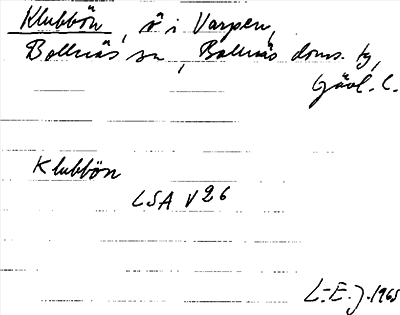 Klubbön, ö i Varpen,
Bollnäs sn, Bollnäs doms. tg,
Gävl. l.
Klubbön
LSA V26
L-E. J. 1965